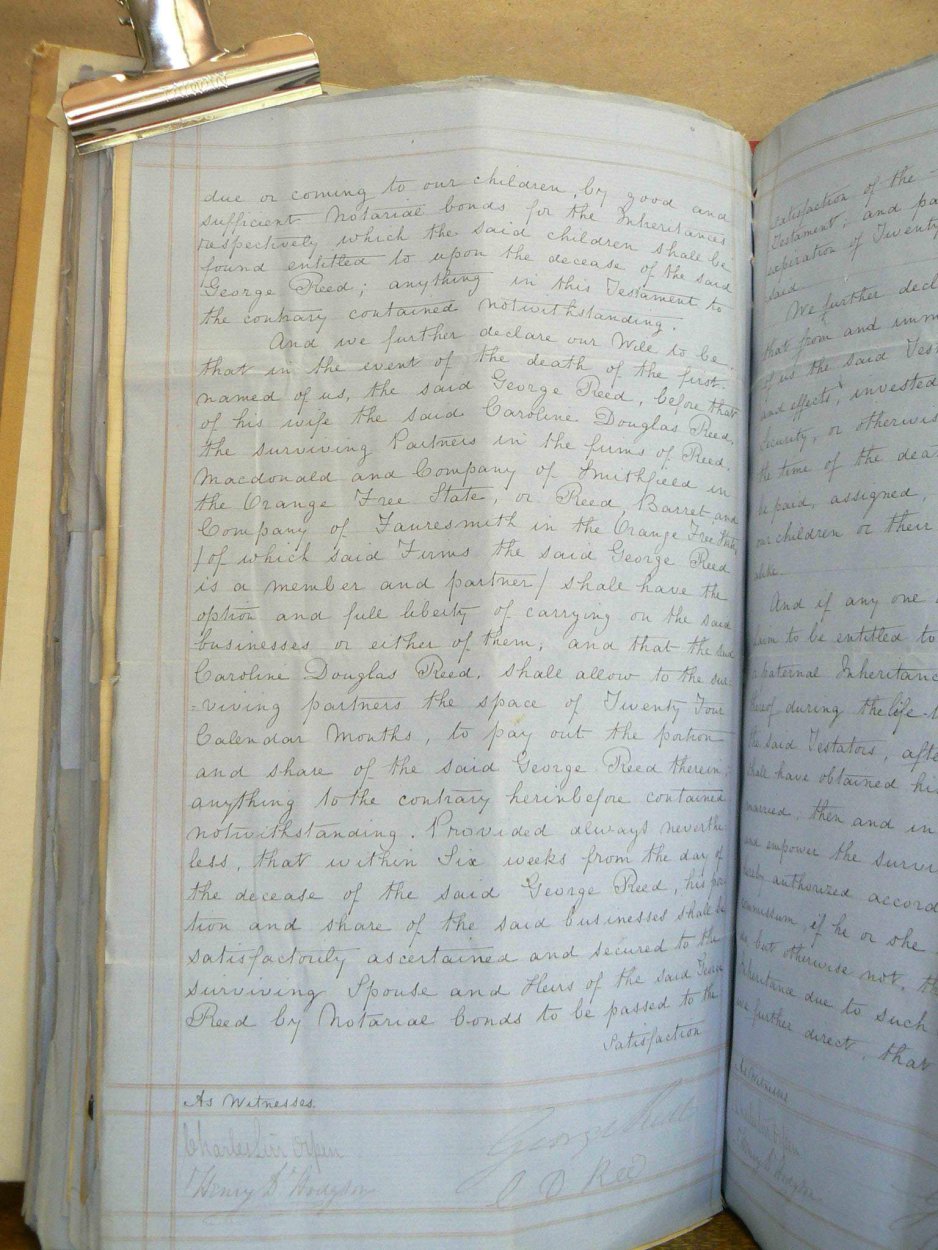 due or coming to our children, by good and
sufficient Notarial bonds for the Inheritances
respectively which the said children shall be
found entitled to upon the decease of the said
George Reed; anything in this Testament to
the contrary contained notwithstanding.
And we further declare our Will to be
that in the event of the death of the first
named of us, the said George Reed, before that
of his wife the said Caroline Douglas Reed,
the surviving Partners in the firms of Reed,
Macdonald and Company of Smithfield in
the Orange Free State, or Reed, Barret, and
Company of Fauresmith in the Orange Free State,
/of which said Firms the said George Reed
is a member and partner/ shall have the
option and full liberty of carrying on the said
businesses or either of them, and that the said
Caroline Douglas Reed, shall allow to the sur=
=viving partners the space of Twenty Four
Calendar Months, to pay out the portion
and share of the said George Reed therein,
anything to the contrary herinbefore contained
notwithstanding. Provided always neverthe
less, that within Six weeks from the day of
the decease of the said George Reed, his por
tion and share of the said businesses shall be
satisfactorily ascertained and secured to the
surviving Spouse and Heirs of the said George
Reed by Notarial bonds to be passed to the
Satisfaction
As Witnesses.
Charles Orpen
Henry Hodgson
George Reed
C D Reed
Satisfaction of the
Testament; and
expiration of Twenty
said
We further decl
that from and imm
of us the said Tes
and effects, invested
security, or otherwis
the time of the dea
be paid, assigned,
our children or their
alike.
And if any one
to be entitled to
paternal Inheritanc
thereof during the life
the said Testators, afte
shall have obtained his
married, then and in
and empower the survi
hereby authorized accord
if he or she
but otherwise not, the
Inheritance due to such
we further direct, that
As Witnesses